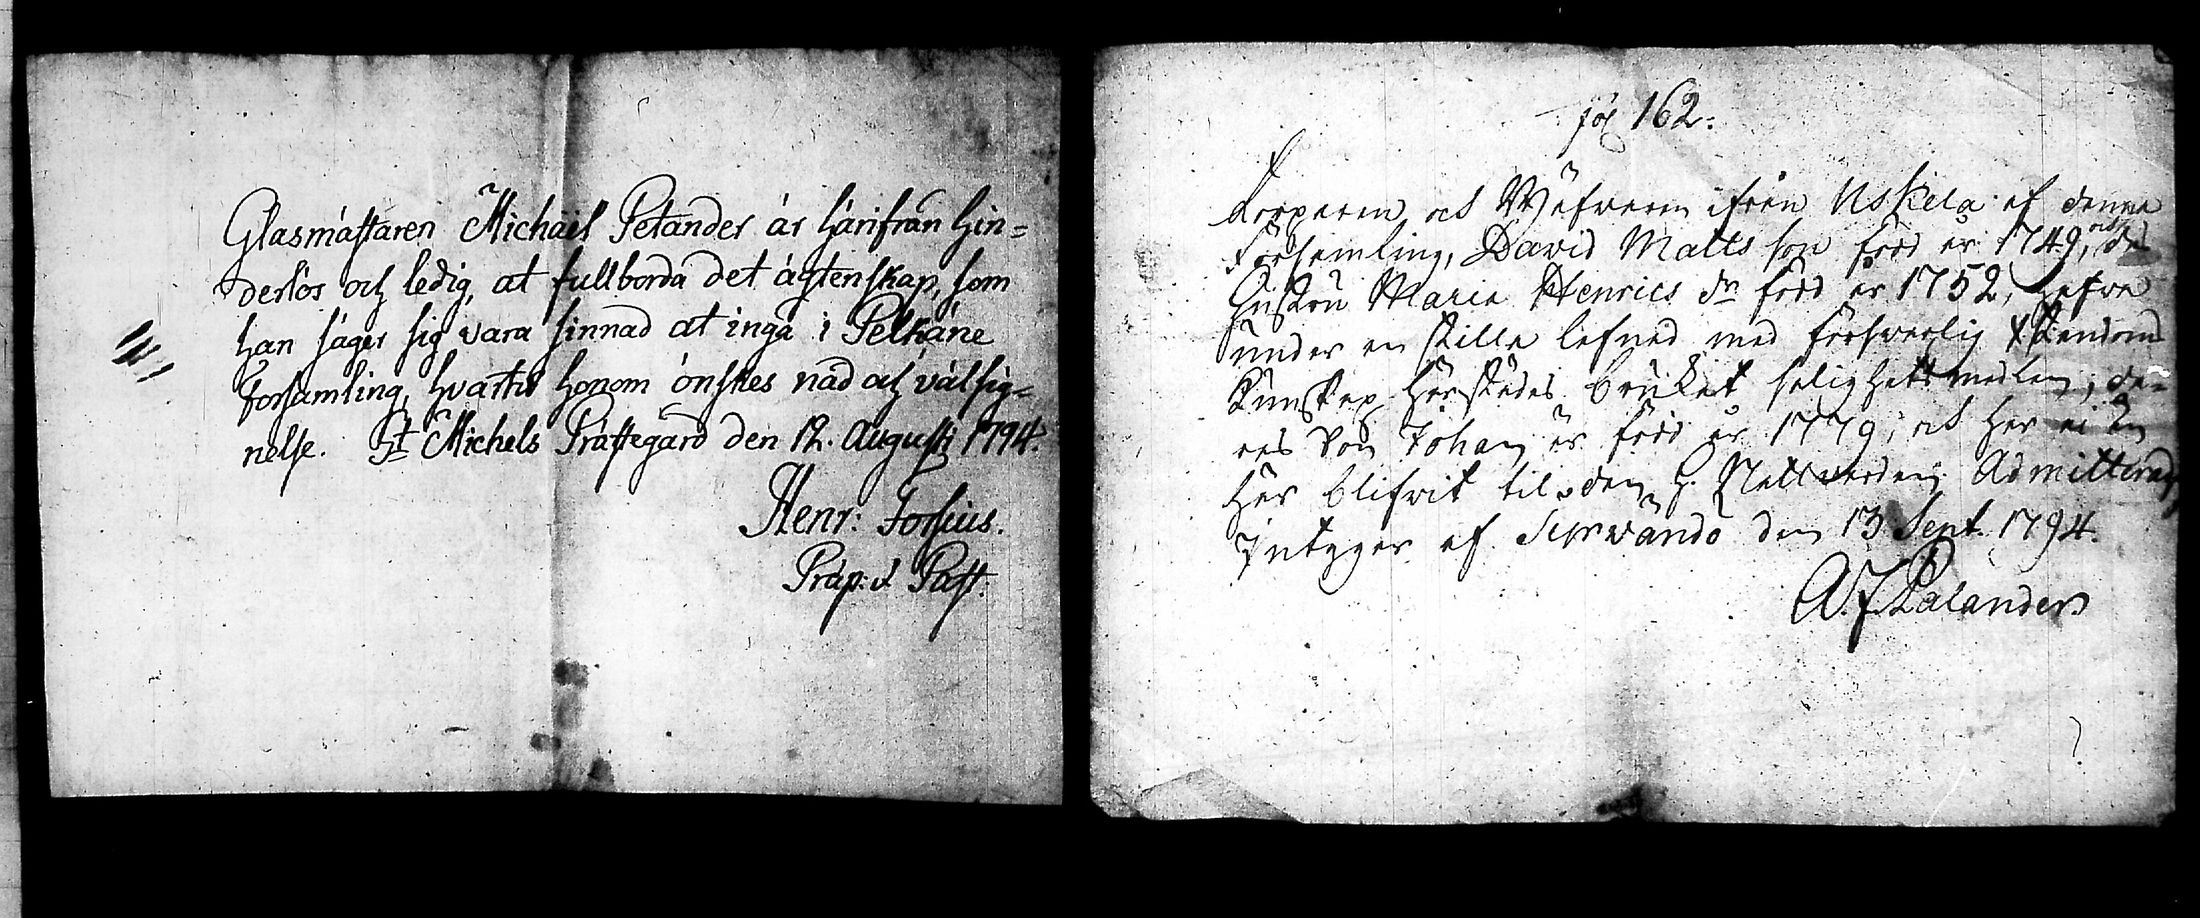 Glasmästaren Michäel Petander är härifrån hin=
derlös och ledig, at fullborda det ägtenskap, som
han säger sig vara sinnad at ingå i Pelkäne
Församling, hvartil honom önskes nåd och välsig=
nelse. St Michels Prästegård den 12. Augusti 1794.
Henr: Fortius.
Präp: & Past.
fol 162:
Torparen och Wäfwaren ifrån Uskela af denna
Församling, David Matts son född år 1749, och des
Hustru Maria Henrics dr född år 1752, hafva
under en stilla lefnad med försvarlig Christendoms
kunskap härstädes brukat salighets medlen; de=
ras Son Johan är född år 1779, och har ei än
här blifvit til den H. Nattvarden Admitterad,
Intygar af Surwando den 13 Sept. 1794.
A. F. Palander